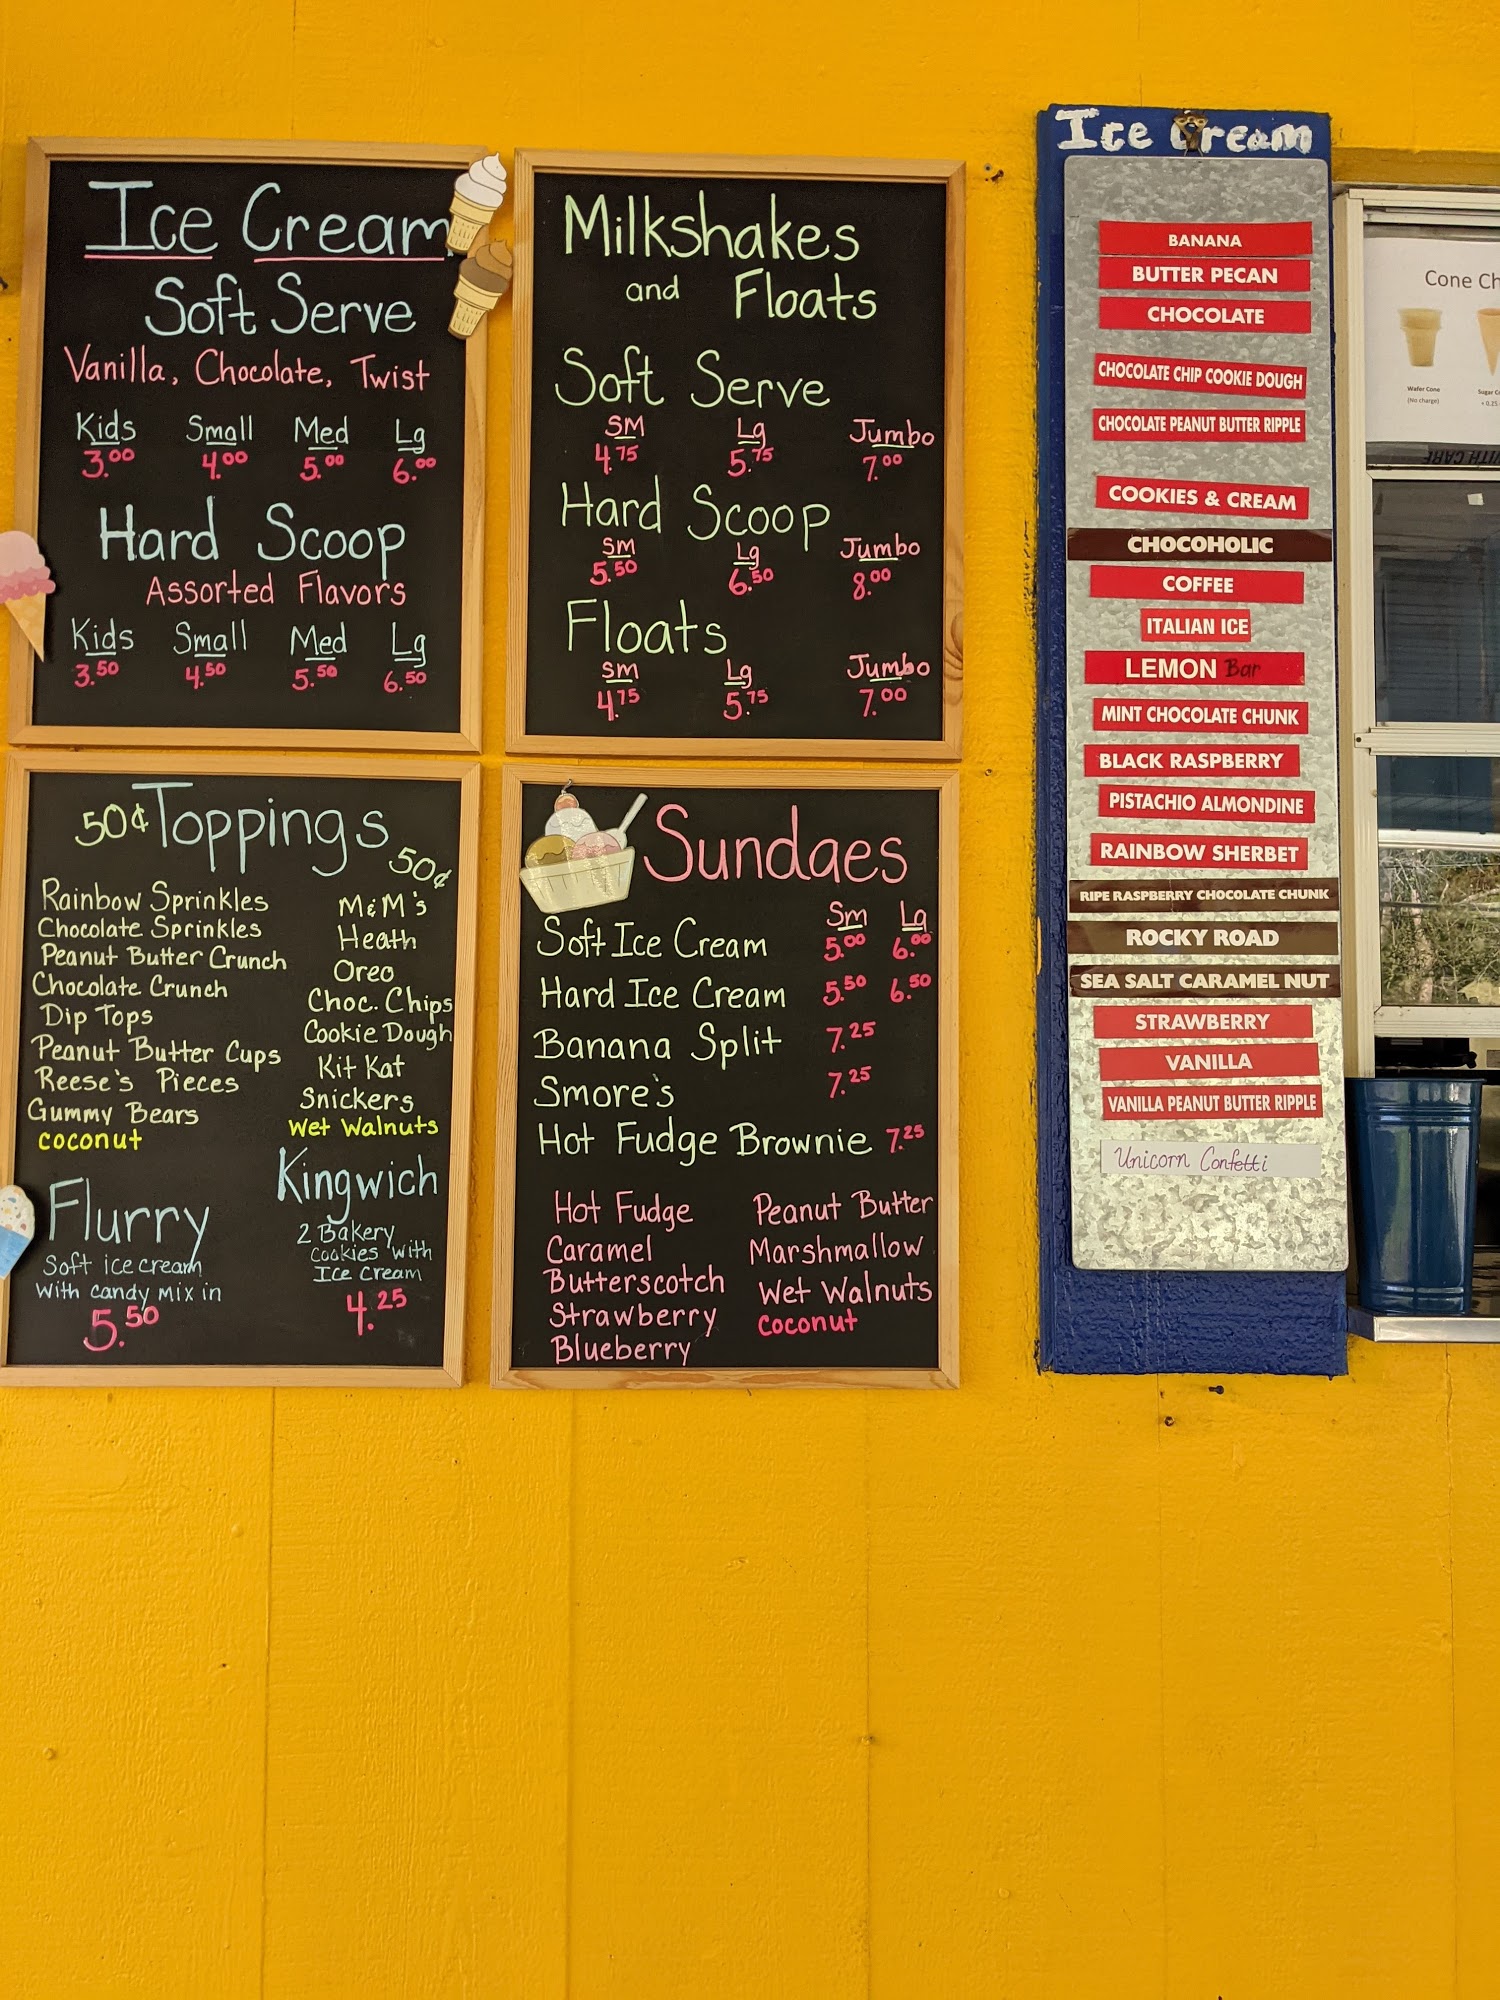 Ice Cream
Soft Serve
Vanilla, Chocolate, Twist
Kids Small Med Lg
3.00 4.00 5.00 6.00
Hard Scoop
Assorted Flavors
Kids Small Med Lg
3.50 4.50 5.50 6.50
Milkshakes
and Floats
Soft Serve
SM Lg Jumbo
4.75 5.75 7.00
Hard Scoop
SM Lg Jumbo
5.50 6.50 8.00
Floats
SM Lg Jumbo
4.75 5.75 7.00
50¢ Toppings 50¢
Rainbow Sprinkles
Chocolate Sprinkles
Peanut Butter Crunch
Chocolate Crunch
Dip Tops
Peanut Butter Cups
Reese's Pieces
Gummy Bears
coconut
M&M's
Heath
Oreo
Choc. Chips
Cookie Dough
Kit Kat
Snickers
Wet Walnuts
Flurry
Soft ice cream
with candy mix in
5.50
Kingwich
2 Bakery
Cookies with
Ice Cream
4.25
Sundaes
Sm Lg
Soft Ice Cream 5.00 6.00
Hard Ice Cream 5.50 6.50
Banana Split 7.25
Smore's 7.25
Hot Fudge Brownie 7.25
Hot Fudge
Caramel
Butterscotch
Strawberry
Blueberry
Peanut Butter
Marshmallow
Wet Walnuts
coconut
Ice Cream
BANANA
BUTTER PECAN
CHOCOLATE
CHOCOLATE CHIP COOKIE DOUGH
CHOCOLATE PEANUT BUTTER RIPPLE
COOKIES & CREAM
CHOCOHOLIC
COFFEE
ITALIAN ICE
LEMON Bar
MINT CHOCOLATE CHUNK
BLACK RASPBERRY
PISTACHIO ALMONDINE
RAINBOW SHERBET
RIPE RASPBERRY CHOCOLATE CHUNK
ROCKY ROAD
SEA SALT CARAMEL NUT
STRAWBERRY
VANILLA
VANILLA PEANUT BUTTER RIPPLE
Unicorn Confetti
Cone Ch
Wafer Cone
(No charge)
Sugar C
WITH CARE